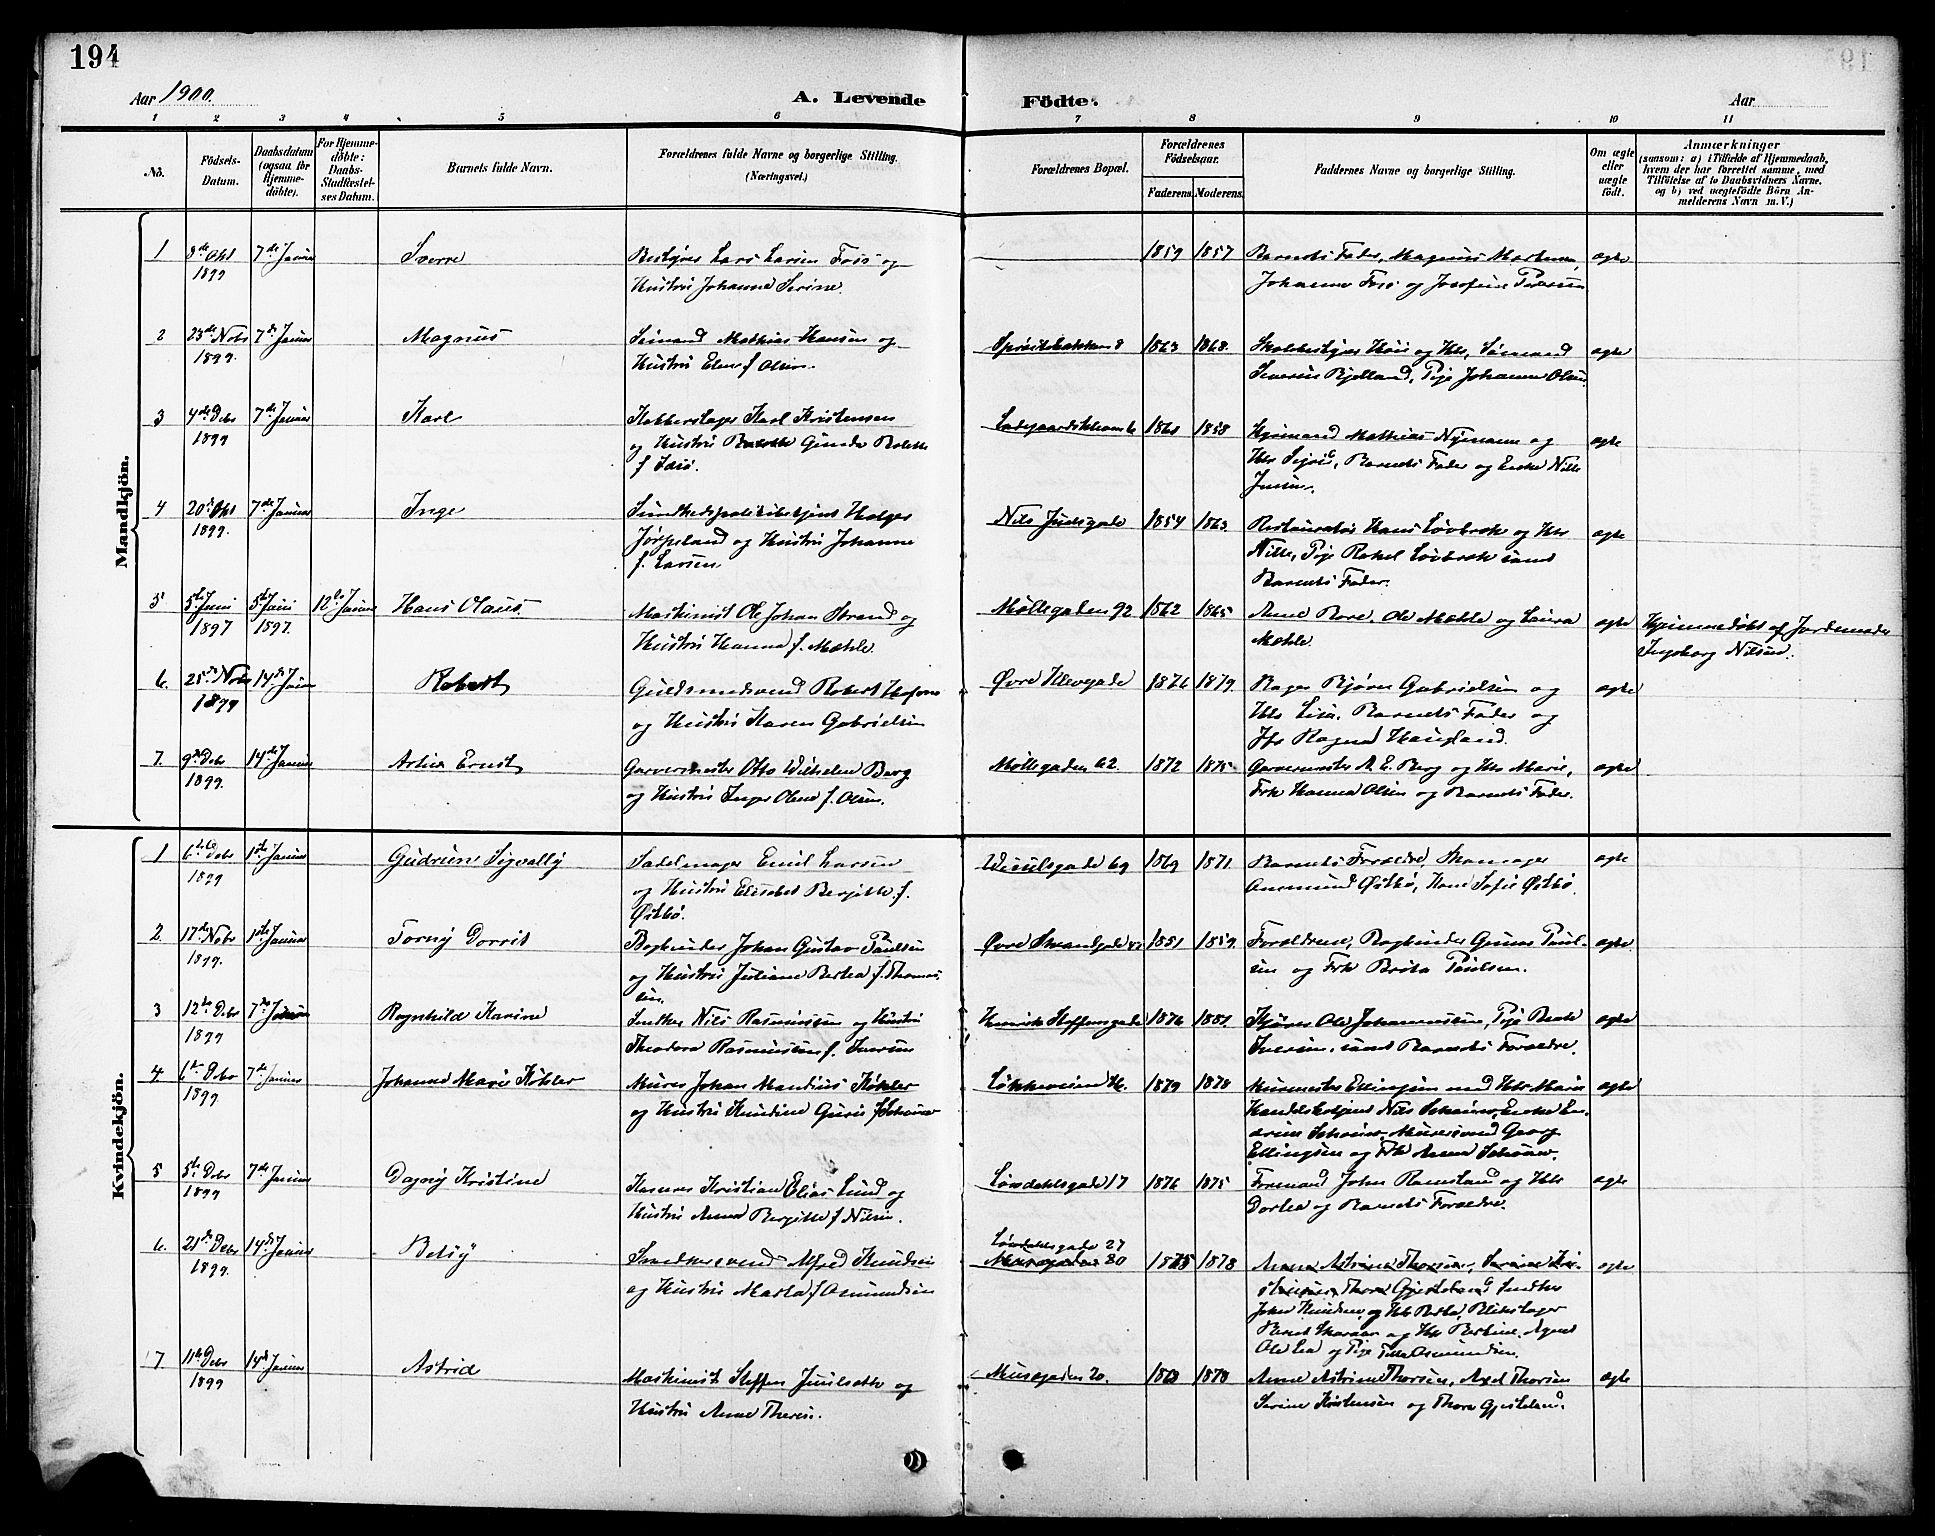 194
Aar 1900.
A. Levende Födte.
Aar
1 2 3 4 5 6 7 8 9 10 11
No.
Födsels-Datum.
Daabsdatum (ogsaa for Hjemmedöbte).
For Hjemmedöbte: Daabs-Stadfæstelses Datum.
Barnets fulde Navn.
Forældrenes fulde Navne og borgerlige Stilling. (Næringsvei.)
Forældrenes Bopæl.
Forældrenes Födselsaar.
Faderens. Moderens.
Faddernes Navne og borgerlige Stilling.
Om ægte eller uægte födt.
Anmærkninger
(saasom: a) i Tilfælde af Hjemmedaab, hvem der har forrettet samme, med Tilföielse af to Daabsvidners Navne, og b) ved uægtefödte Börn Anmelderens Navn m. V.)
Mandkjön.
1 8de Okt 1899 7de Januar Sverre Bestyrer Lars Larsen Foss og Hustru Johanne Serine. 1859 1857 Barnets Fader, Magnus Johanne Foss og Josefine ægte
2 23de Novbr 1899. 7de Januar Magnus Sømand Mathias Hansen og Hustru f. Olsen. 8 1863 1868. Skolebestyrer og Hstr, Sømand Severin Bjelland, Pige Johanne Olsen ægte
3 4de Debr 1899 7de Januar Karl Kobberslager Karl Kristensen og Hustru Gunda Bolette f. Ladegaardsbakken 6 1858 Mathias Nymann og Barnets Fader og Enke ægte
4 20de Okt 1899. 7de Januar Inge Holger Jørpeland og Hustru Johanne f. Larsen Nils Juelsgade 1854 1863 Hans Løvbrek og Hstr Pige Rakel Løvbrek samt Barnets Fader. ægte
5 5te Juni 1897 5te Juni 1897. 12te Januar Hans Olaus Maskinist Ole Johan Strand og Hustru Hanna f. Mæhle. Møllegaden 92 1862 1865 Anne Bore, Ole Mæhle og Laura Mæhle. ægte Hjemmedøbt af Jordemoder Ingeborg Nilsen.
6. 25de Novbr 1899 14de Januar Robert Guldsmedsvend Robert og Hustru Karen Gabrielsen Øvre Klevegade 1876 1879. Bager Bjørn Gabrielsen og Hstr Lisa, Barnets Fader og Ragna Haugland. ægte
7. 9de Debr 1899. 14de Januar Artur Ernst Garvermester Otto Wilhelm Berg og Hustru Inger Olene f. Olsen. Møllegaden 62. 1872 1875 Garvermester A. E. Berg og Hstr Marie, Frk Hanna Olsen og Barnets Fader. ægte
Kvindekjön.
1 6te Debr 1899 1ste Januar Gudrun Sigvally Sadelmager Emil Larsen og Hustru Elisabet Bergitte f. Østbø. 69 1869 1871 Barnets Forældre, Skomager Østbø, Sofie Østbø. ægte
2. 17de Novbr 1899. 1ste Januar Torny Dorrit Bogbinder Johan Gustav Paulsen og Hustru Juliane Bertea f. Thomassen. Øvre Strandgade 1851 1859. Forældrene, Bogbinder Paulsen og Frk Paulsen. ægte
3 12te Debr 1899 7de Januar Ragnhild Karine Snedker Nils Rasmussen og Hustru Theodora Rasmussen f. Iversen Henrik Steffensgade 1876 1881. Ole Johannessen, Pige Iversen, samt Barnets Forældre. ægte
4. 6te Debr 1899 7de Januar Johanne Marie Køhler Murer Johan Mandius Køhler og Hustru Knudine Guri f. Løkkeveien 1879 1878 Murmester Ellingsen med Hstr Marie Nils Enke Georg Ellingsen og Frk Anna ægte
5 5te Debr 1899 7de Januar Dagny Kristine Kristian Elias Lund og Hustru Anna Bergitte f. Nilsen. Løvdahlsgade 17 1876 1875 Formand John Ramsland og Hstr Dortea og Barnets Forældre. ægte
6. 21de Debr 1899. 14de Januar Betsy Snedkersvend Alfred Knudsen og Hustru Marta f. Osmundsen Løvdahlsgade 27 Musegaden 20 1875 1878 Anne Astrine Thorsen, Serine Kristensen, Thora Gjesteland Snedker John Knudsen og Hstr Berta, Blikslager og Hstr Bertine, Agent Ole Lea og Pige Osmundsen. ægte
7 11te Debr 1899 14de Januar Astrid Maskinist Steffen Juulsætre og Hustru Anne Therese. Musegaden 20. 1878 Anne Astrine Thorsen, Axel Thorsen Serine Kristensen og Thora Gjesteland. ægte